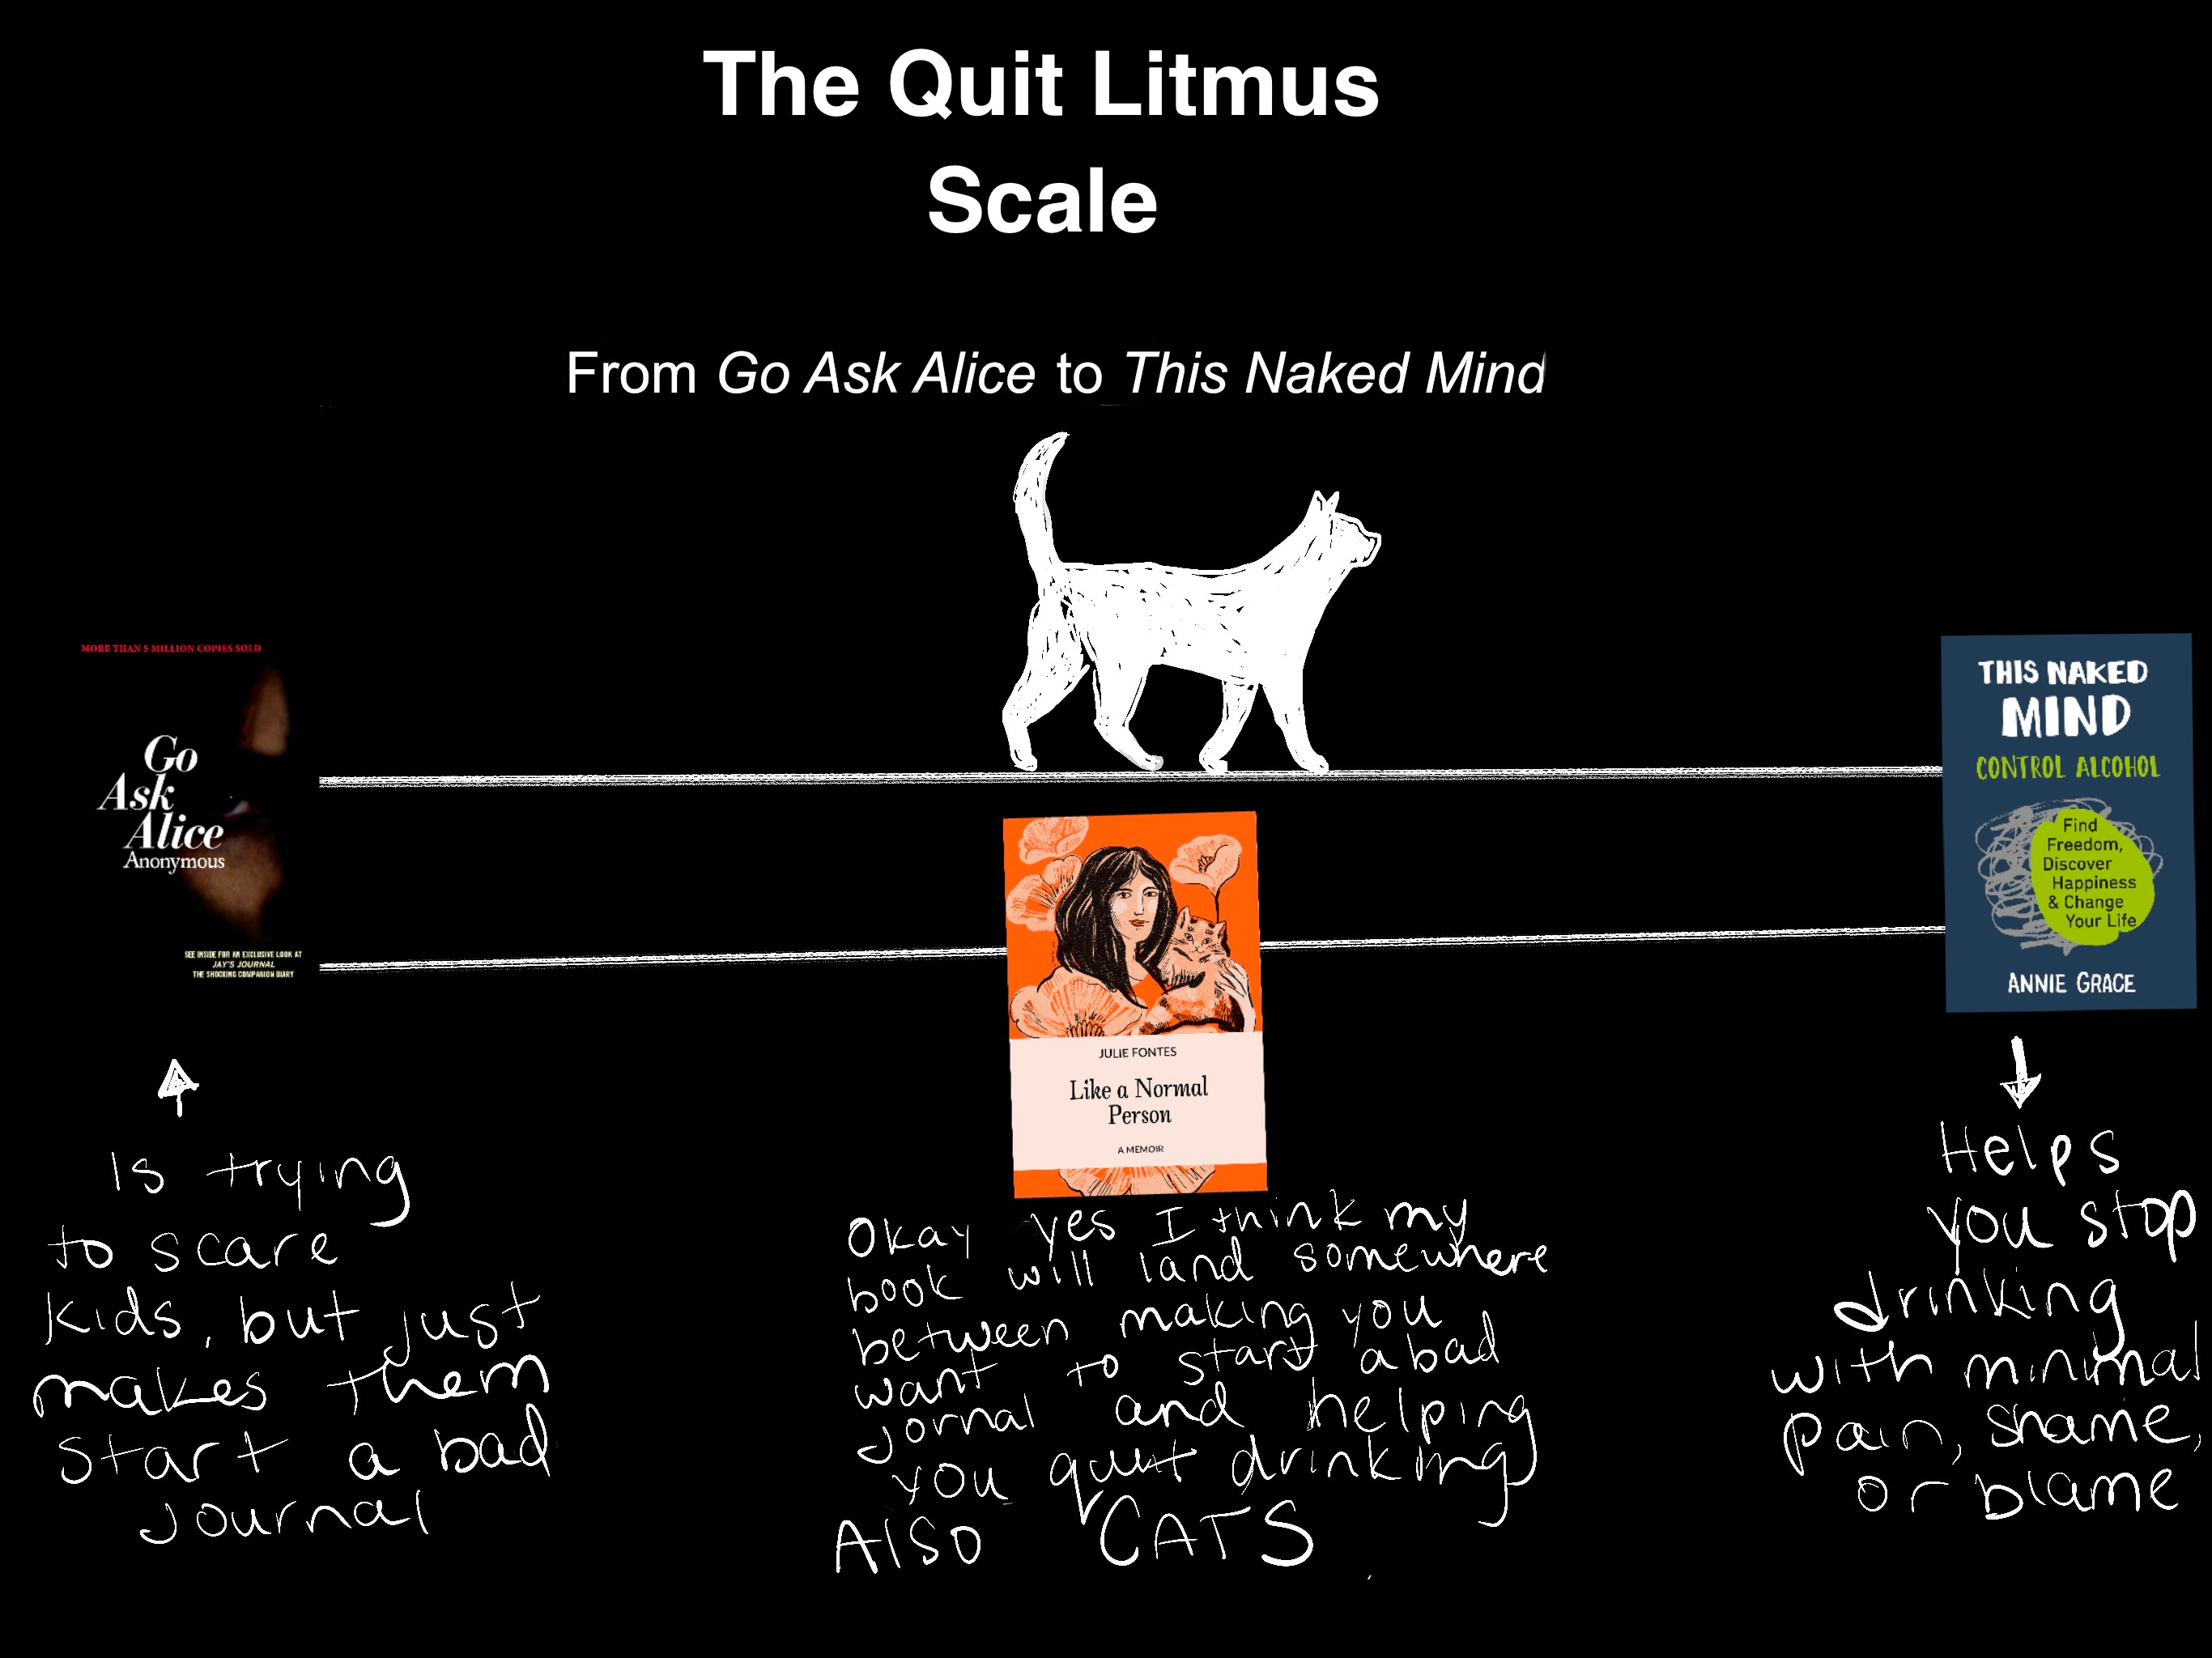 The Quit Litmus
Scale
From Go Ask Alice to This Naked Mind
MORE THAN 5 MILLION COPIES SOLD
Go
Ask
Alice
Anonymous
SEE INSIDE FOR AN EXCLUSIVE LOOK AT
JAY'S JOURNAL
THE SHOCKING COMPANION DIARY
Is trying
to scare
kids, but just
makes them
start a bad
journal
JULIE FONTES
Like a Normal
Person
A MEMOIR
Okay yes I think my
book will land somewhere
between making you
want to start a bad
jornal and helping
you quit drinking
Also CATS
THIS NAKED
MIND
CONTROL ALCOHOL
Find
Freedom,
Discover
Happiness
& Change
Your Life
ANNIE GRACE
Helps
you stop
drinking
with minimal
pain, shame,
or blame